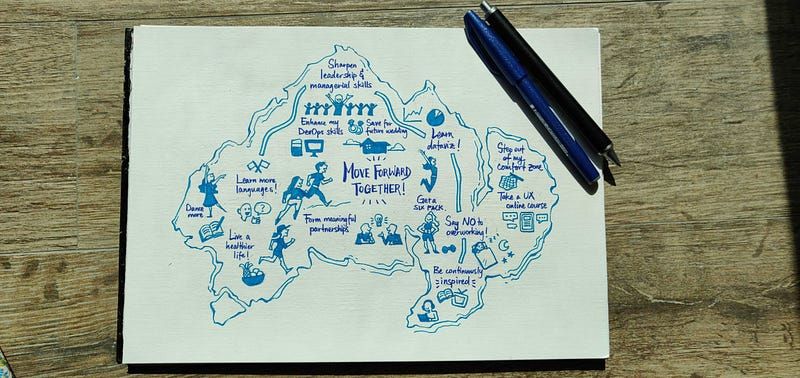 Sharpen
leadership &
managerial skills
Enhance my
DevOps skills
Save for
future wedding
Learn
dataviz!
Step out
of my
comfort zone
Learn more
languages!
MOVE FORWARD
TOGETHER!
Dance
more
Get a
six pack
Take a UX
online course
Form meaningful
partnerships
Say NO to
overworking!
Live a
healthier
life!
Be continuously
inspired